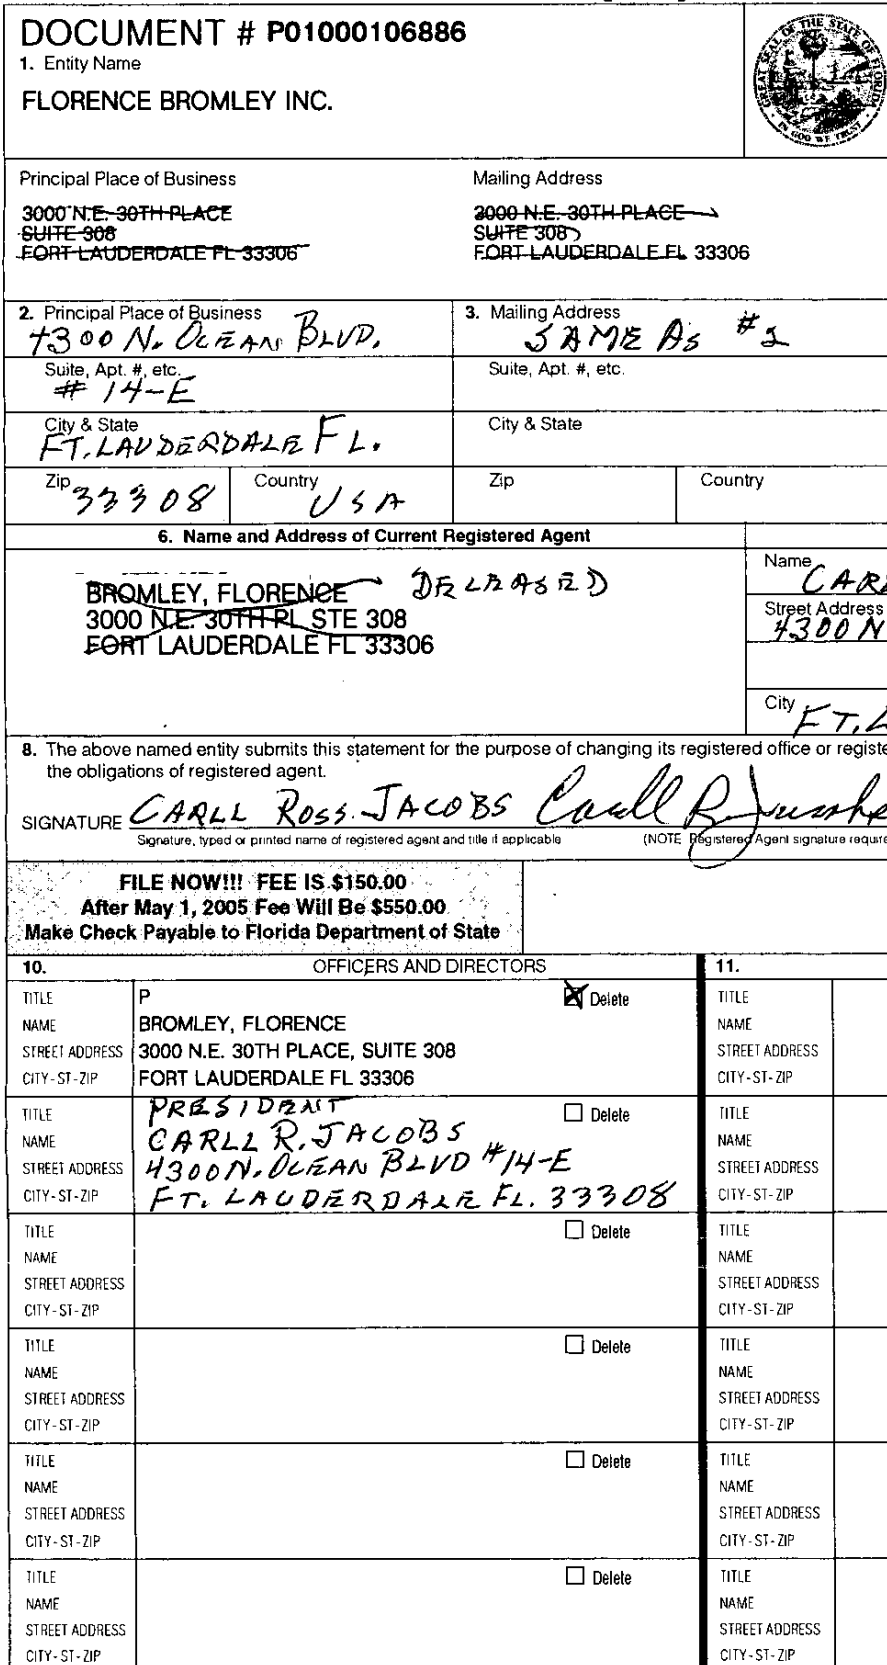 DOCUMENT # P01000106886
1. Entity Name
FLORENCE BROMLEY INC.
GREAT SEAL OF THE STATE OF FLORIDA
IN GOD WE TRUST
Principal Place of Business
Mailing Address
3000 N.E. 30TH PLACE
SUITE 308
FORT LAUDERDALE FL 33306
3000 N.E. 30TH PLACE
SUITE 308
FORT LAUDERDALE FL 33306
2. Principal Place of Business
4300 N. OCEAN BLVD.
3. Mailing Address
SAME AS #2
Suite, Apt. #, etc.
# 14-E
Suite, Apt. #, etc.
City & State
FT. LAUDERDALE FL.
City & State
Zip
33308
Country
USA
Zip
Country
6. Name and Address of Current Registered Agent
BROMLEY, FLORENCE DECEASED
3000 N.E. 30TH PL STE 308
FORT LAUDERDALE FL 33306
Name
CARL
Street Address
4300 N
City
FT. L
8. The above named entity submits this statement for the purpose of changing its registered office or registe
the obligations of registered agent.
SIGNATURE CARLL ROSS JACOBS Carll R Jacobs
Signature, typed or printed name of registered agent and title if applicable
(NOTE Registered Agent signature require
FILE NOW!!! FEE IS $150.00
After May 1, 2005 Fee Will Be $550.00
Make Check Payable to Florida Department of State
10. OFFICERS AND DIRECTORS
11.
TITLE P Delete
NAME BROMLEY, FLORENCE
STREET ADDRESS 3000 N.E. 30TH PLACE, SUITE 308
CITY-ST-ZIP FORT LAUDERDALE FL 33306
TITLE
NAME
STREET ADDRESS
CITY-ST-ZIP
TITLE PRESIDENT Delete
NAME CARLL R. JACOBS
STREET ADDRESS 4300 N. OCEAN BLVD #14-E
CITY-ST-ZIP FT. LAUDERDALE FL. 33308
TITLE
NAME
STREET ADDRESS
CITY-ST-ZIP
TITLE Delete
NAME
STREET ADDRESS
CITY-ST-ZIP
TITLE
NAME
STREET ADDRESS
CITY-ST-ZIP
TITLE Delete
NAME
STREET ADDRESS
CITY-ST-ZIP
TITLE
NAME
STREET ADDRESS
CITY-ST-ZIP
TITLE Delete
NAME
STREET ADDRESS
CITY-ST-ZIP
TITLE
NAME
STREET ADDRESS
CITY-ST-ZIP
TITLE Delete
NAME
STREET ADDRESS
CITY-ST-ZIP
TITLE
NAME
STREET ADDRESS
CITY-ST-ZIP